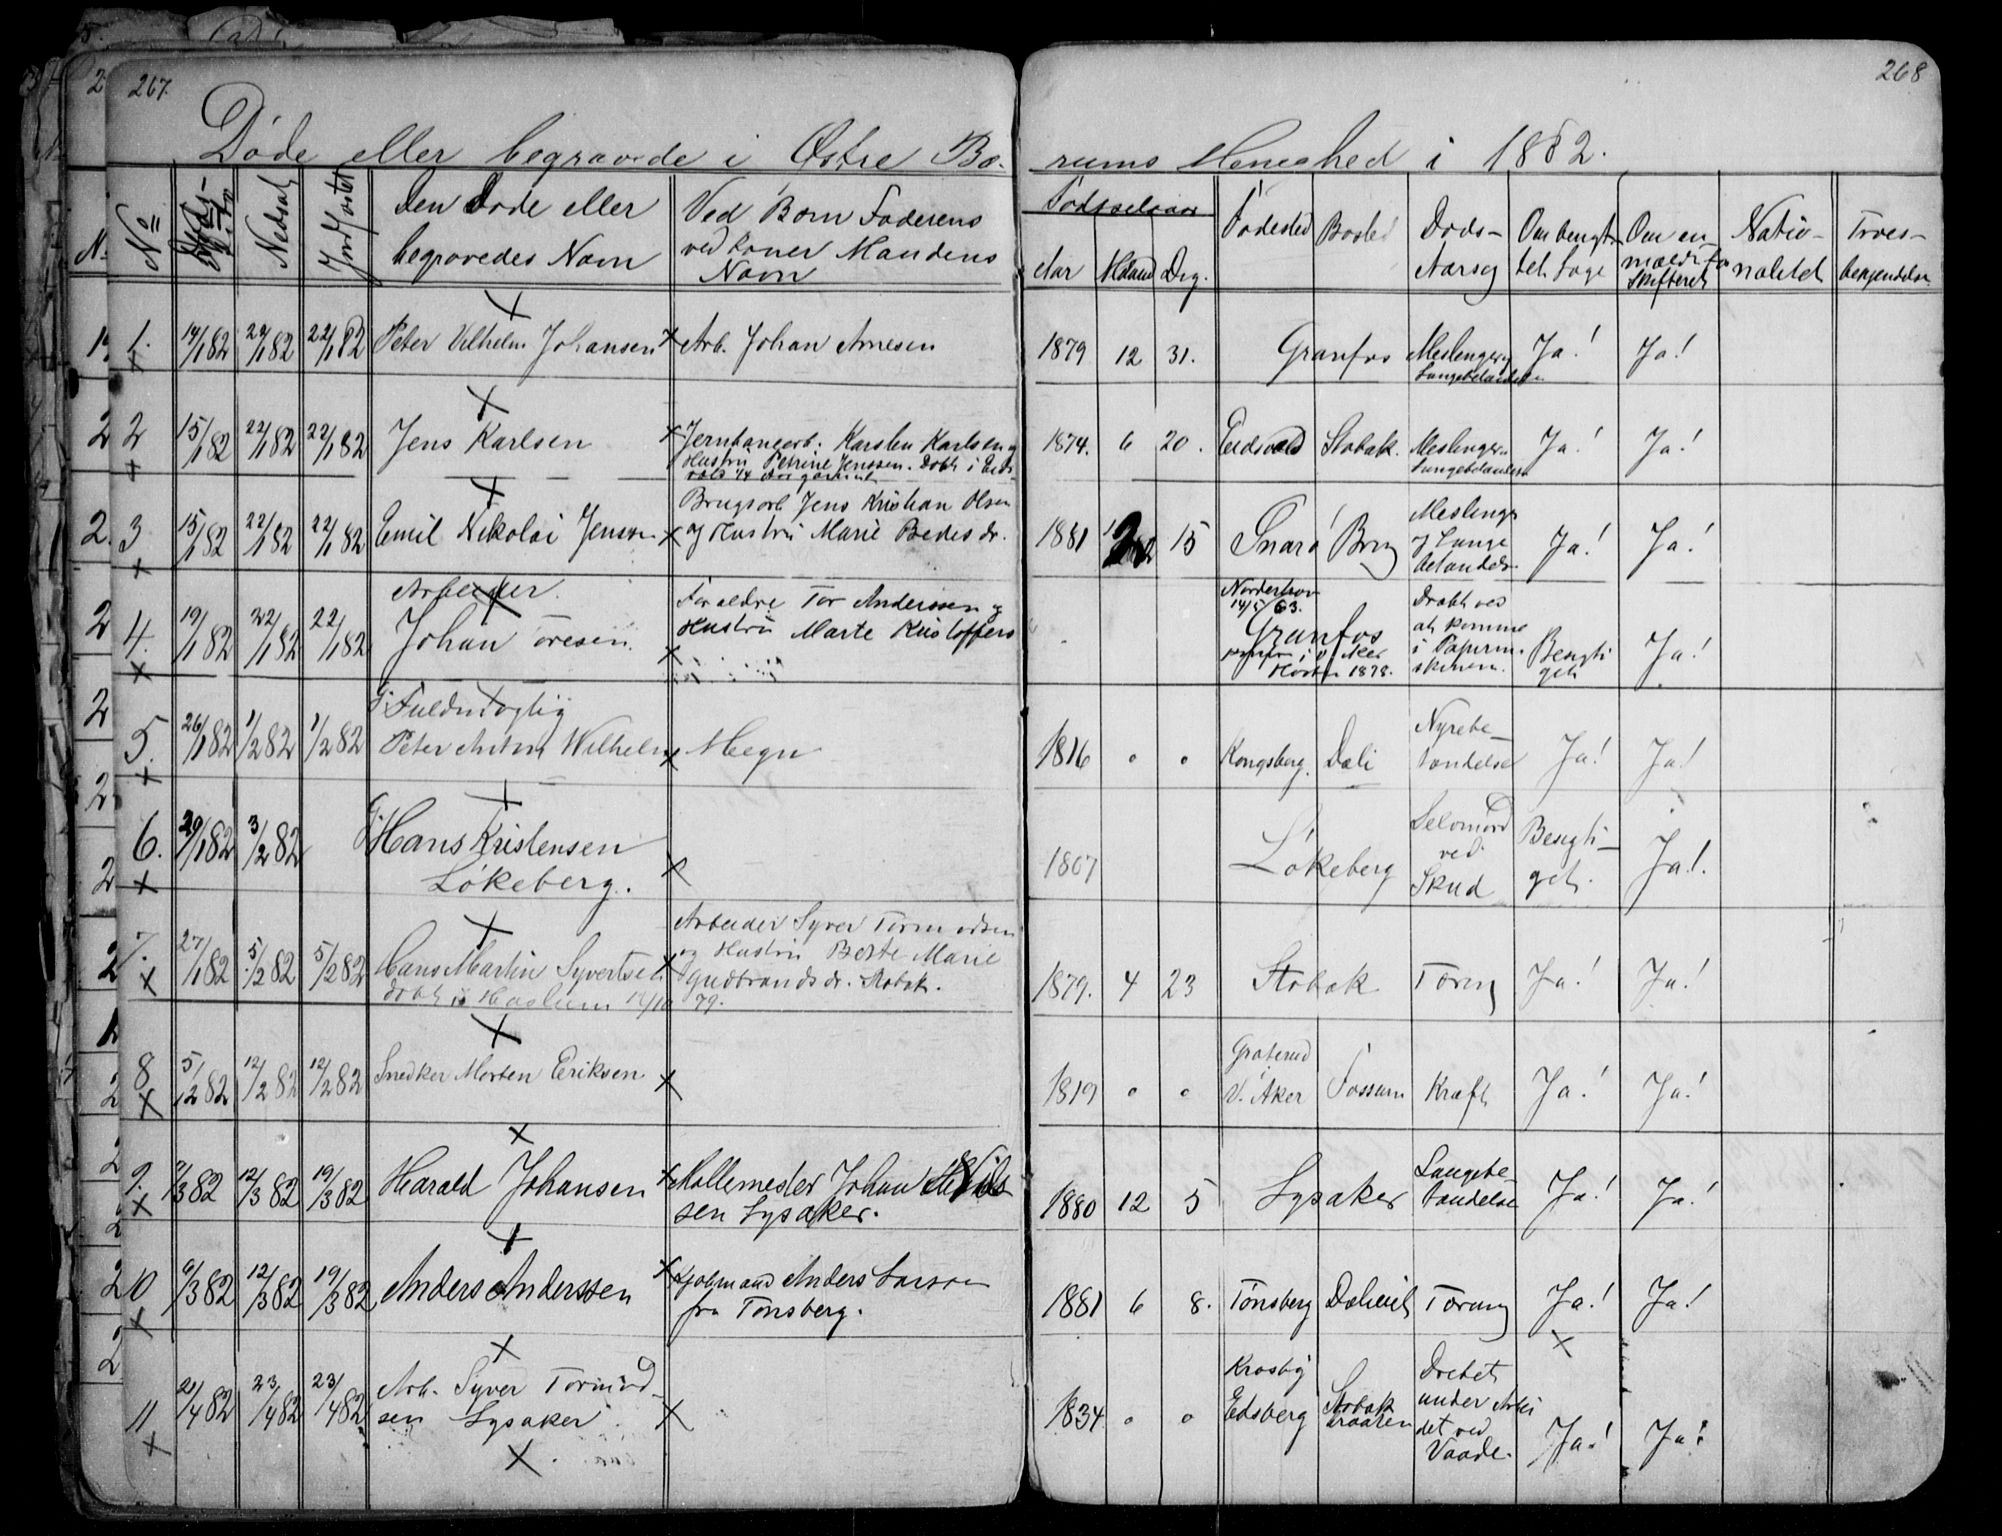 267.
268
Døde eller begravede i Østre Bæ-
rums Menighed i 1882.
No
Nedsat
Jordfæstet
Den Døde eller
begravedes Navn
Ved Børn Faderens
ved Koner Mandens
Navn
Fødselsaar
Aar
Maaned
Dag.
Fødested
Bosted
Døds-
Aarsag
Om besigti-
Om an-
mældt for
Skifteret
Natio-
nalitet
Troes-
bekjendelse
1. 14/1 82 22/1 82 22/1 82 Peter Vilhelm Johansen Arb. Johan Arnesen 1879 12 31. Granfos Meslinger og Ja! Ja!
Lungebetændelse
2 15/1 82 22/1 82 22/1 82 Jens Karlsen Jernbanearb. Karsten Karlsen og 1874. 6 20. Eidsvold Stabæk. Meslinger Ja! Ja!
Hustru Petrine Jenssen. Døbt i Eids-
Lungebetændelse
3 15/1 82 22/1 82 22/1 82 Emil Nikolai Jenssen Brugsarb. Jens Kristian Olsen 1881 15 Snarø Brug Meslinger Ja! Ja!
og Hustru Marie Pedersdr.
og Lunge
betændelse
Arbeider
4. 19/1 82 22/1 82 22/1 82 Johan Toresen Forældre Tor Anderssen og
Hustru Marte Kristoffers
Norderhov
14/5 63.
Granfos
Høsten 1878.
Dræbt ved
at komme
i Papirma-
skinen.
Besigti
get
Ja!
Fuldmægtig
5. 26/1 82 1/2 82 1/2 82 Peter Anton Wilhelm Hegn 1816 " " Kongsberg. Dæli Nyrebe- Ja! Ja!
tændelse
6. 29/1 82 3/2 82 Hans Kristensen
Løkeberg.
1807 Løkeberg Selvmord
ved
Skud
Besigti-
get.
Ja!
7. 27/1 82 5/2 82 5/2 82 Hans Martin Syvertsen Arbeider Syver Tormodsen
og Hustru Berte Marie
Gudbrandsdr. Stabæk.
døbt i Haslum 12/10 79.
1879. 4 23 Stabæk Tæring Ja! Ja!
8 5/2 82 12/2 82 12/2 82 Snedker Morten Eriksen 1819 " " V. Aker Fossum Kræft Ja! Ja!
9. 7/3 82 12/3 82 19/3 82 Harald Johansen Møllemester Johan Nils
sen Lysaker.
1880 12 5 Lysaker Lungebe-
tændelse
Ja! Ja!
10 6/3 82 12/3 82 19/3 82 Anders Anderssen Kjøbmand Anders Larsen
fra Tønsberg.
1881 6 8. Tønsberg Tæring Ja! Ja!
11 21/4 82 23/4 82 23/4 82 Arb. Syver Tormod-
sen Lysaker
1834 " " Krosby
Edsberg
Stabæk
braaten
Dræbet
under Arbei
det ved
Vaade.
Ja! Ja!